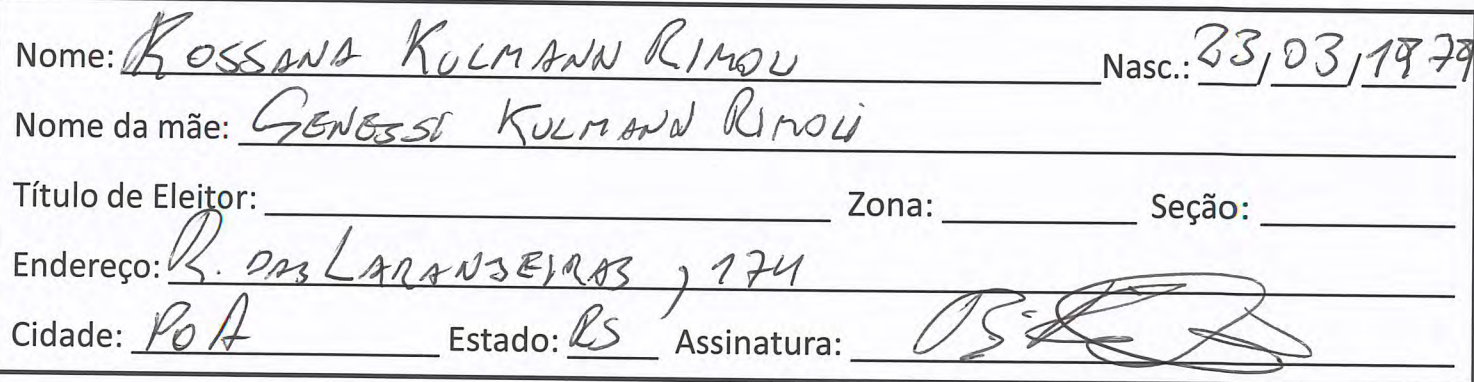 Nome: ROSSANA KULMANN RIMOLI Nasc.: 23/03/1979
Nome da mãe: GENESSI KULMANN RIMOLI
Título de Eleitor: Zona: Seção:
Endereço: R. DAS LARANJEIRAS, 174
Cidade: PoA Estado: RS Assinatura: